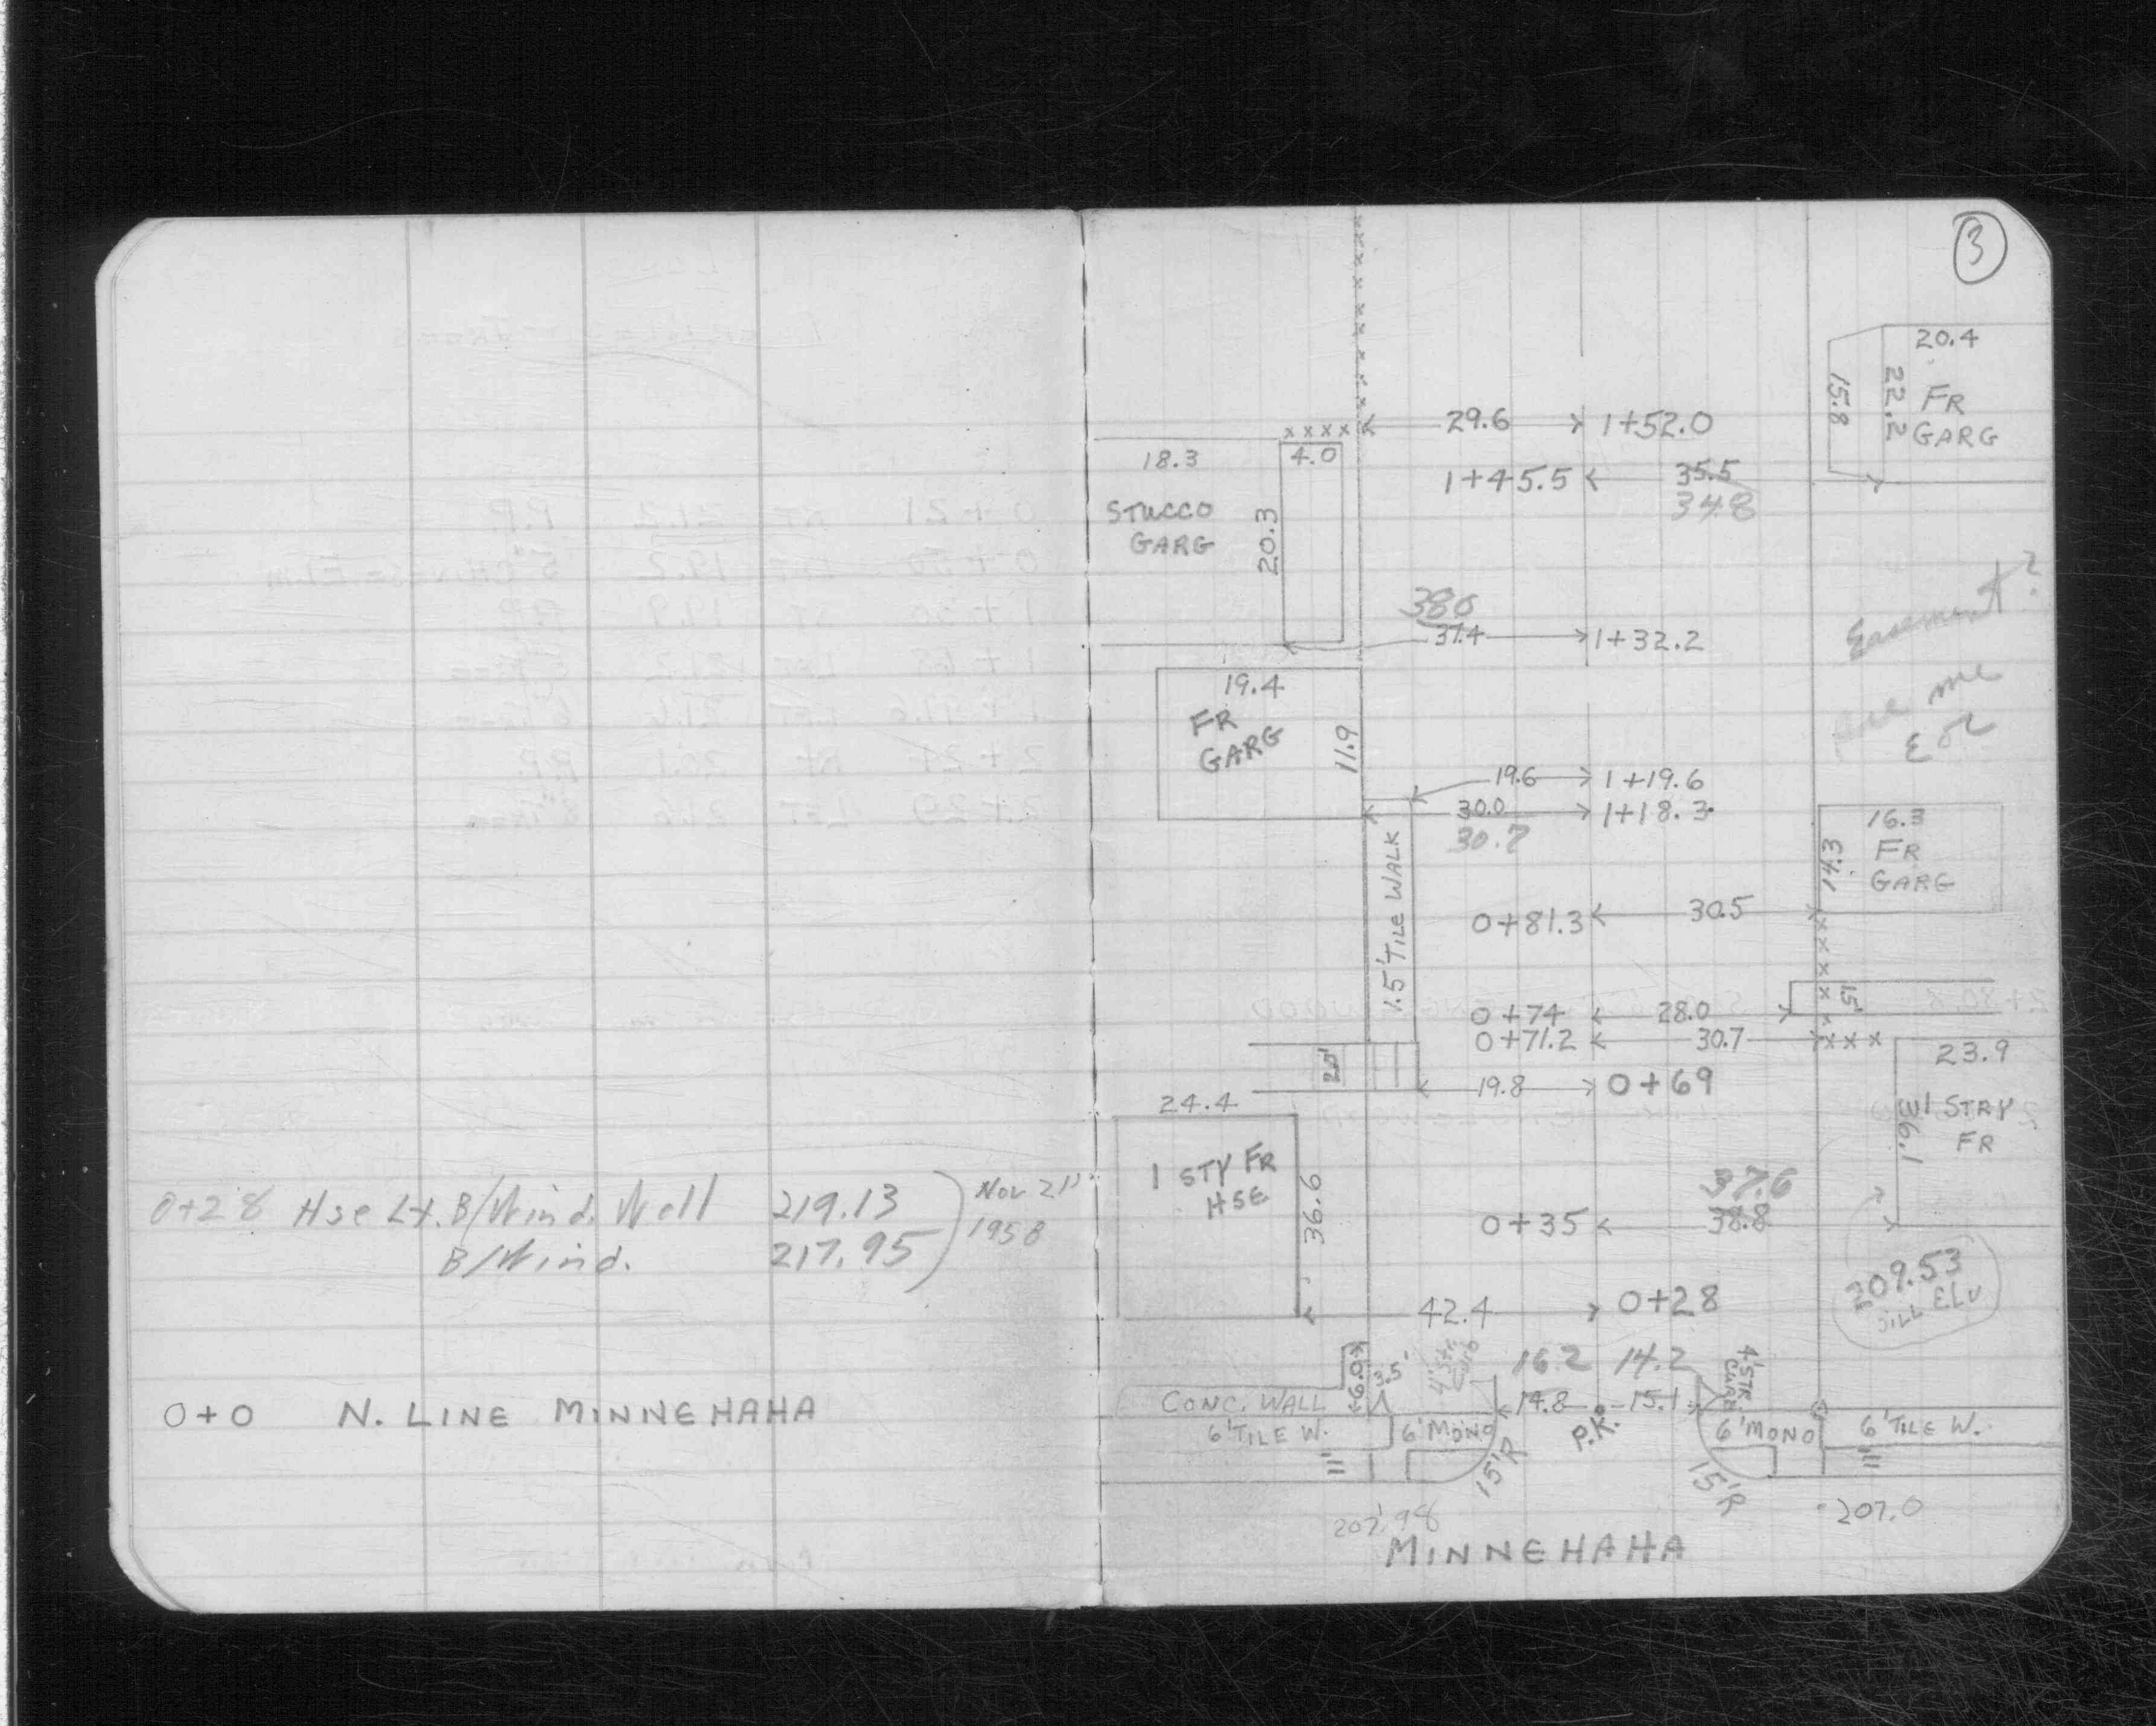 0+28 Hse Lt. B/Wind. Well 219.13
B/Wind. 217.95
Nov 21
1958
0+0 N. LINE MINNEHAHA
3
20.4
22.2
15.8
FR
GARG
29.6 1+52.0
4.0
18.3
1+45.5 35.5
34.8
STUCCO
GARG
20.3
Easement?
38.0
37.4 1+32.2
see me
19.4
FR
GARG
11.9
19.6 1+19.6
30.0 1+18.3
30.7
16.3
FR
GARG
14.3
1.5' TILE WALK
0+81.3 30.5
1.5'
0+74 28.0
0+71.2 30.7
23.9
2.5'
19.8 0+69
24.4
1 STRY
FR
36.1
1 STY FR
HSE
36.6
37.6
0+35 38.8
209.53
SILL ELV
42.4 0+28
6.0
3.5'
4' Str.
Curb
16.2 14.2
4' STR.
CURB
14.8 15.1
P.K.
CONC. WALL
6' TILE W. 6' MONO 6' MONO 6' TILE W.
11' 15'R 15'R 11'
207.98 207.0
MINNEHAHA